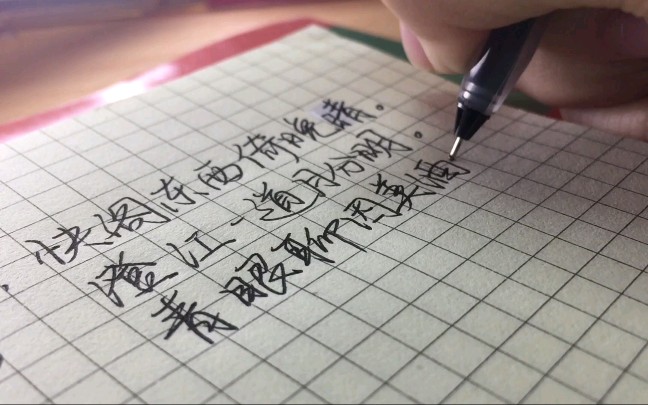 快阁东西倚晚晴。
澄江一道月分明。
青眼聊因美酒